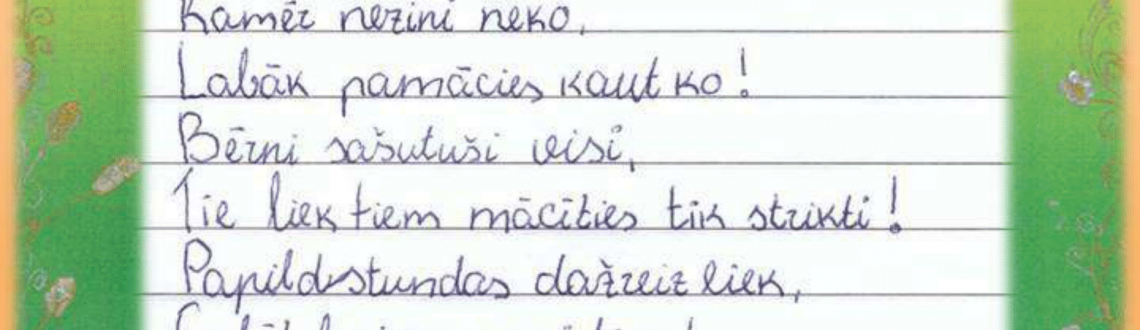 Kamēr nezini neko,
Labāk pamācies kaut ko!
Bērni sašutuši visi,
Tie liek tiem mācīties tik strikti!
Papildstundas dažreiz liek,